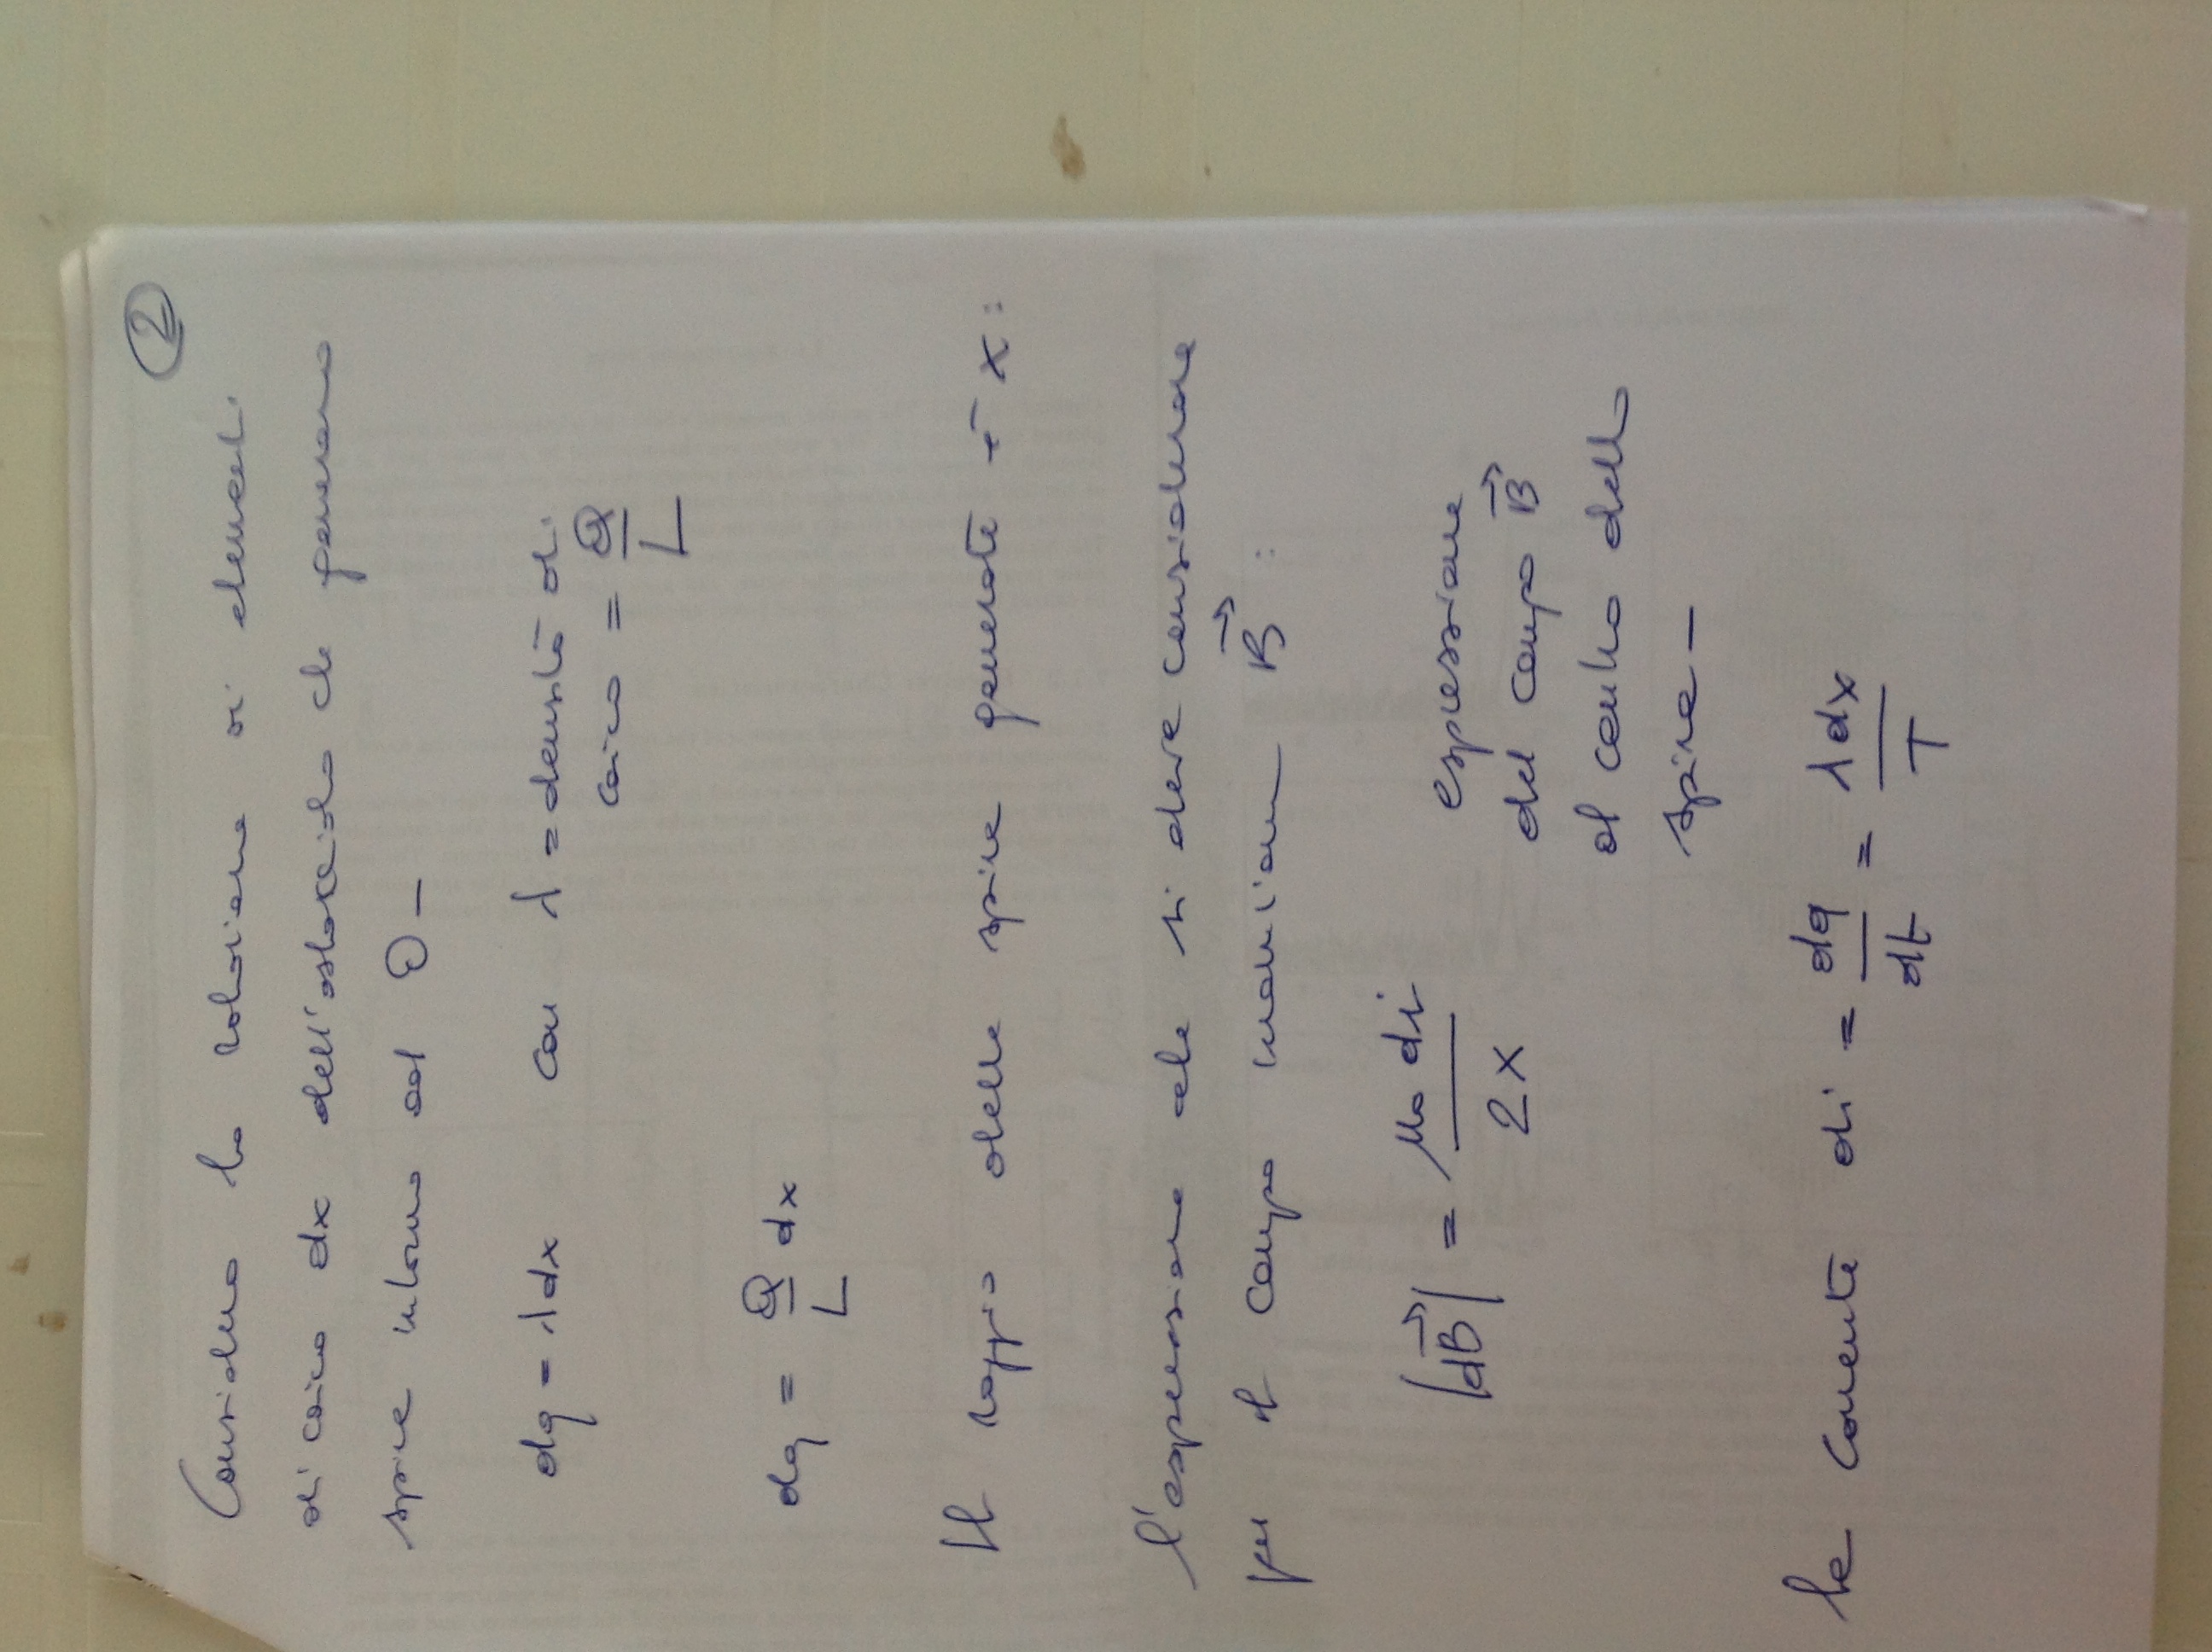 2
Considero la rotazione di elementi
di carica dx dell'asticciola che generano
spire intorno ad O -
dq = λdx con λ = densità di
carica = Q/L
dq = Q/L dx
Il raggio delle spire generate è x:
l'espressione che si deve considerare
per il campo induzione B⃗ :
|dB⃗| = μ₀ di / 2x espressione
del campo B⃗
al centro della
spira -
la corrente di = dq/dt = λdx/T